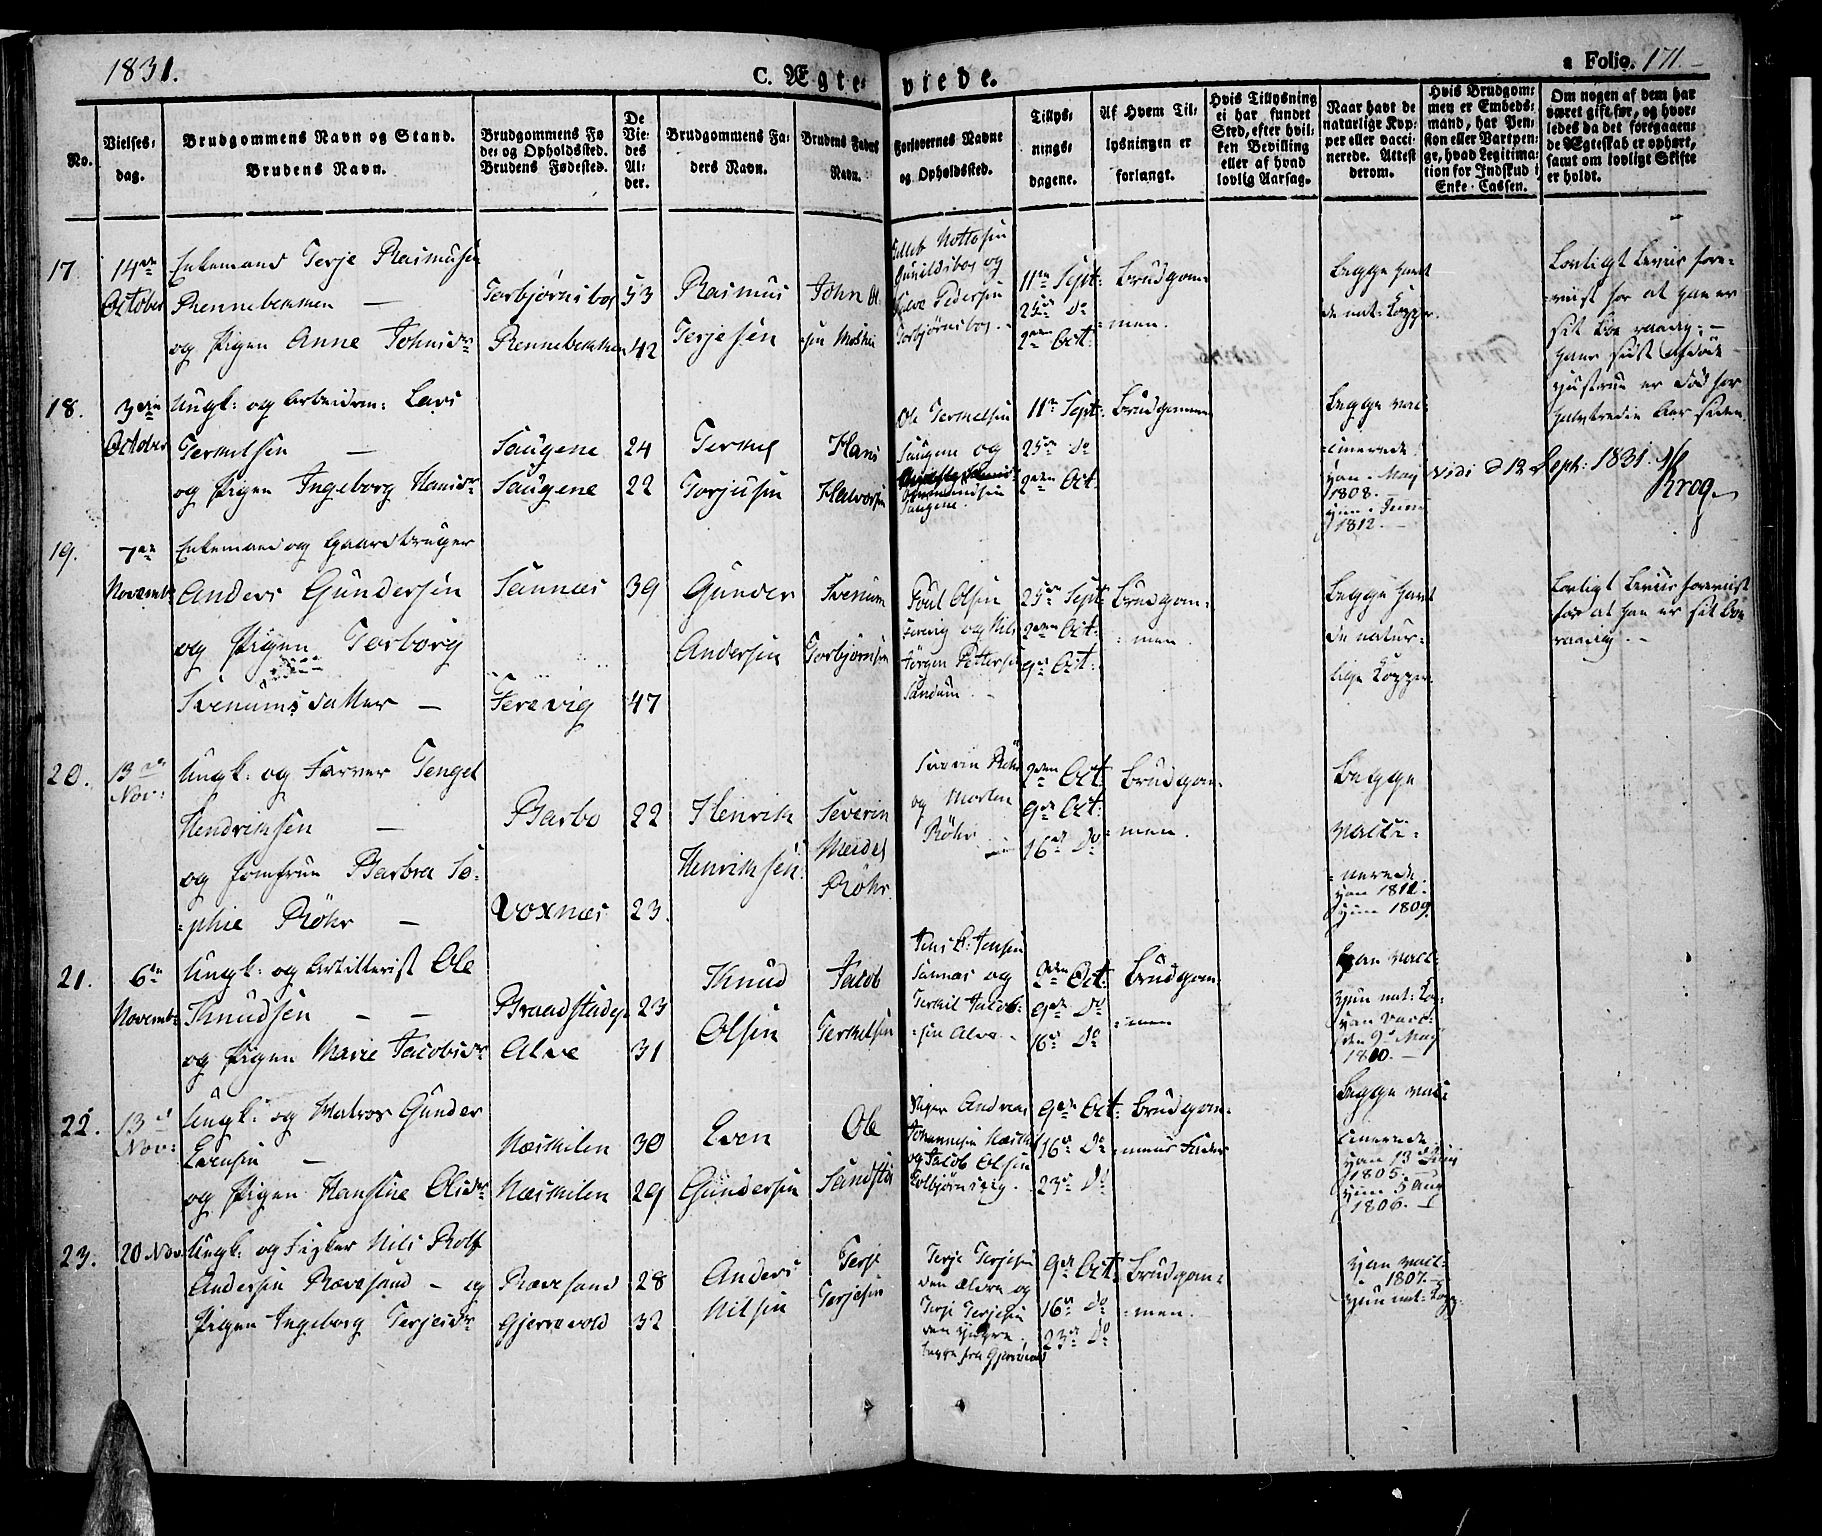 1831.
C. Ægte-
viede.
a Folio. 171.
No.
Vielses-
dag.
Brudgommens Navn og Stand.
Brudens Navn.
Brudgommens Fø-
de- og Opholdssted.
Brudens Fødested.
De
Vie-
des
Al-
der.
Brudgommens Fa-
ders Navn.
Brudens Faders
Navn.
Forlovernes Navne
og Opholdssted.
Tillys-
nings-
dagene.
Af Hvem Til-
lysningen er
forlangt.
Hvis Tillysning
ei har fundet
Sted, efter hvil-
ken Bevilling
eller af hvad
lovlig Aarsag.
Naar havt de
naturlige Kop-
per eller vacci-
nerede. Attest
derom.
Hvis Brudgom-
men er Embeds-
mand, har Pen-
sion eller Vartpen-
ge, hvad Legitima-
tion for Indskud i
Enke-Cassen.
Om nogen af dem har
været gift før, og hvor-
ledes da det foregaaen-
de Ægteskab er ophørt,
samt om lovligt Skifte
er holdt.
17.
14de
October
Enkemand Terje Rasmusen
Rennebekken —
og Pigen Anne Johnsdr
Torbjørnsboe 53
Rennebekken 42
Rasmus
Terjesen
John
Nottosen
Gunildsboe og
Pedersen
Torbjørnsboe.
11te Sept:
25de Do
2den Oct:
Brudgom-
=men.
Begge havt
de nat: Kopper.
Lovligt Beviis fore-
=viist for at han er
hans sidst afdøde
Hustrue er død for
halvtredie Aar siden
18.
3die
October
Ungk: og Arbeidsm: Lars
Terkelsen —
og Pigen Ingeborg Hansdr
Saugene 24
Saugene 22
Terkel
Torjusen
Hans
Halvorsen
Ole Terkelsen
Saugene og
Saugene.
11te Sept:
25de Do
2den Oct:
Brudgommen
Begge vac-
=cinerede
han - May
1808. —
hun - Juni
1812. —
Vidi d 12 Sept: 1831.
Krog.
19.
7de
Novemb:
Enkemand og Gaardbruger
Anders Gundersen
og Pigen Torborg
Svenumsdatter —
Sannæs 39
Terevig 47
Gunder
Andersen
Svenum
Torbjørnsen
Poul Olsen
Terevig og Nils
Jørgen Pettersen
Sandum.
25de Sept:
2den Oct:
9de Oct:
Brudgom-
=men.
Begge havt
de natur-
lige Kopper.
Lovligt Beviis foreviist
for at han er
20.
13de
Nov:
Ungk: og Farver Tengel
Hendriksen —
og Jomfrue Barbra So-
=phie Röhr —
Barbo 22
Voxnæs 23.
Henrik
Henriksen
Severin
Meidel
Röhr.
Severin Röhr
og Morten
Röhr
2den Oct:
9de Oct:
16de Do
Brudgom-
=men.
Begge
vacci-
=nerede
han 1812.
hun 1809.
21.
6te
Novemb:
Ungk: og Artillerist Ole
Knudsen — —
og Pigen Marie Jacobsdr
Braadstadge 23
Alve 31
Knud
Olsen
Jacob
Terkelsen
Jens B: Jensen
Sannæs og
Terkil Jacob-
=sen Alve.
2den Oct:
9de Do
16de Do
Brudgom-
=men
han vacc:
hun nat: Kop:
han vacc:
den 9de May
1810. —
22.
13de
Nov:
Ungk: og Matros Gunder
Evensen —
og Pigen Hanstine Olsdr
Næskilen 30
Næskilen 29
Even
Gundersen
Ole
Andreas
Johannesen Næskil
og Jacob Olsen
Torbjørnsvig.
9de Oct:
16de Do
23de Do
Brudgom-
=mens Fader
Begge vac-
cinerede
han 13 Juni
1805.
hun 5 Aug
1806. —
23.
20 Nov:
Ungk: og Fisker Nils Rolf
Andersen Rævesand — og
Pigen Ingeborg Terjesdr
Rævesand 28
Gjerrevold 32
Anders
Nilsen
Terje
Terjesen
Terje Terjesen
den ældre og
Terje Terjesen
den yngre.
begge fra
9de Oct:
16de Do
23de Do
Brudgom-
=men.
han vacc:
1807. —
hun nat: Kopp: